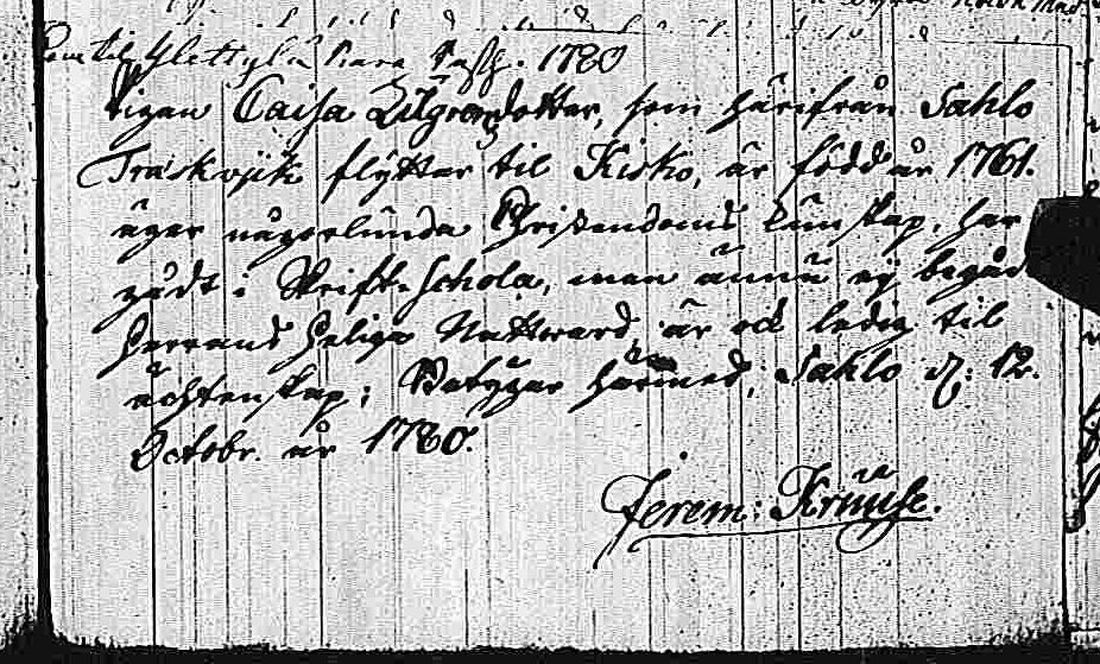 1780
Pigan Caisa Zilgrensdotter, som härifrån Sahlo
Träskvjik flÿttar til Kisko, är född år 1761.
äger någorlunda Christendoms kunskap, har
gådt i Skrift-Schola, men ännu ej begådt
Herrans Heliga Nattward, är ock ledig til
ächtenskap; Betÿgar härmed, Sahlo d: 12.
Octobr. år 1780.
Jerem: Krause.